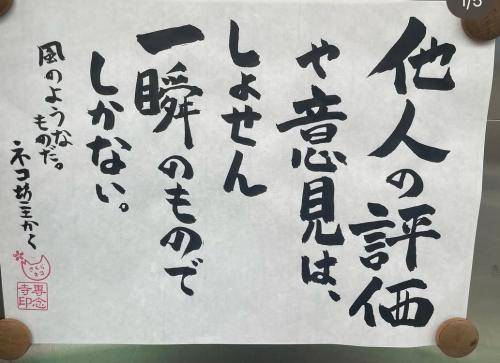 他人の評価
や意見は、
しょせん
一瞬のもので
しかない。
風のような
ものだ。
ネコ坊主かく
専念
寺印
1/5